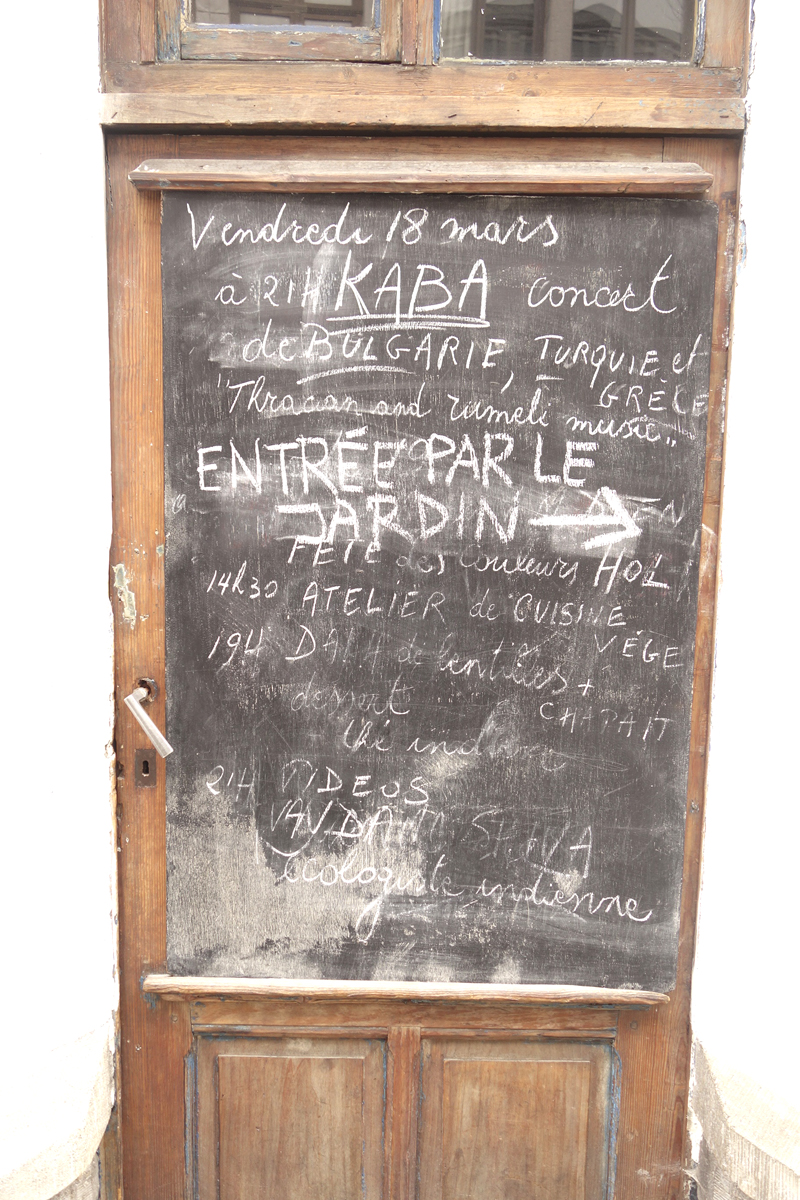 Vendredi 18 mars
à 21H KABA concert
de BULGARIE, TURQUIE et
GRÈCE
"Thracian and rumeli music"
ENTRÉE PAR LE
JARDIN →
FÊTE des couleurs HOLI
14h30 ATELIER de CUISINE
VÉGÉ
19H DAHL de lentilles +
dessert CHAPATI
thé indien
21H VIDEOS
VANDANA SHIVA
écologiste indienne